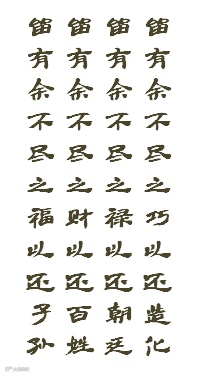 留有余不尽之巧以还造化
留有余不尽之禄以还朝廷
留有余不尽之财以还百姓
留有余不尽之福以还子孙